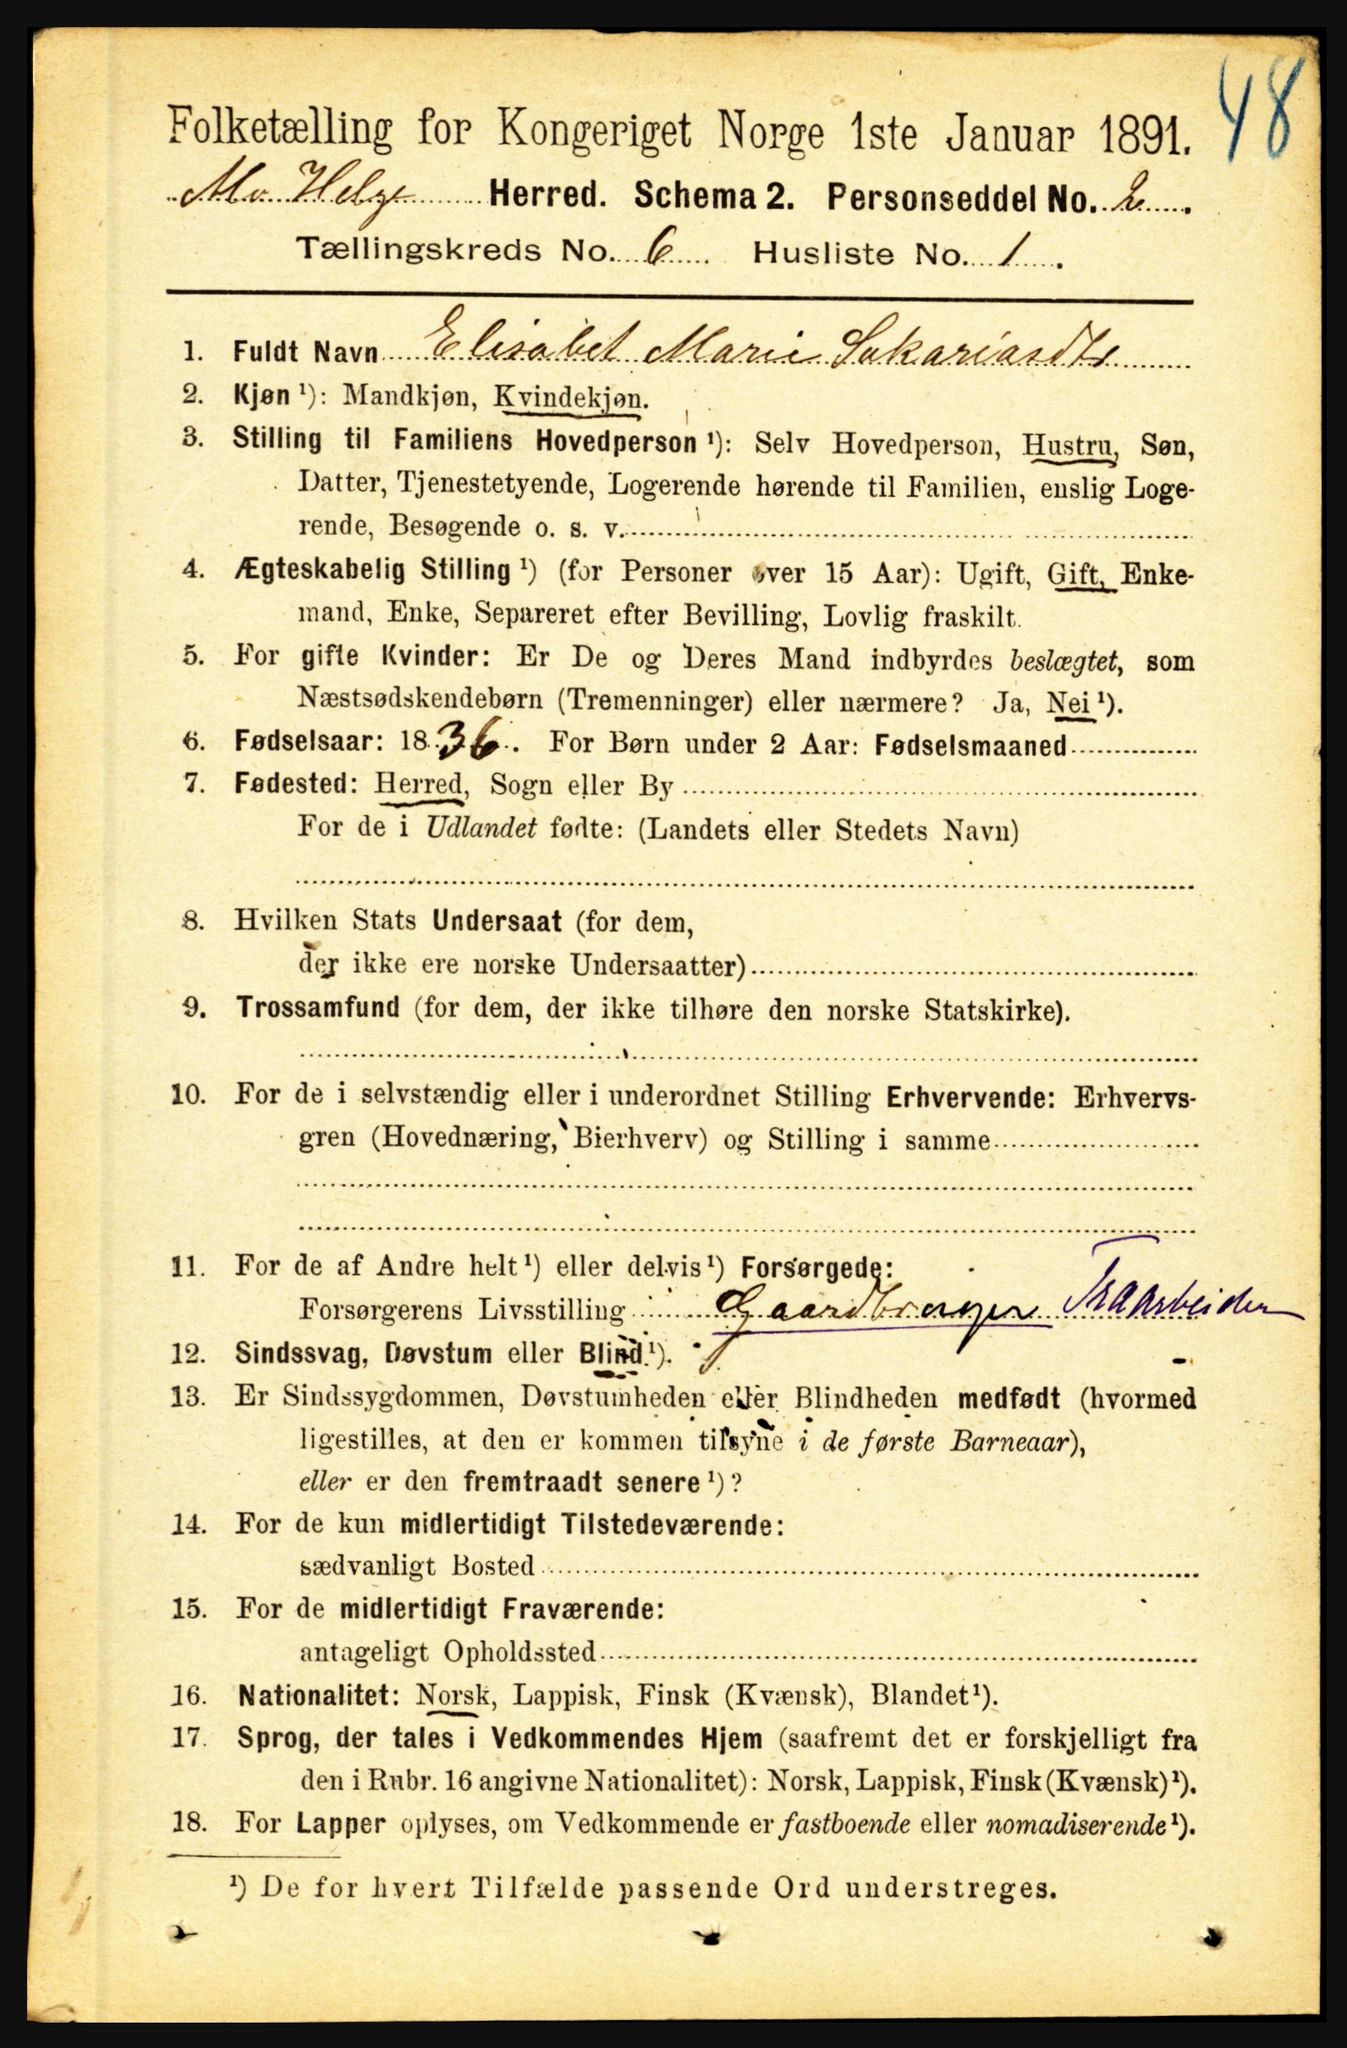 48
Folketælling for Kongeriget Norge 1ste Januar 1891.
Herred. Schema 2. Personseddel No. 2.
Tællingskreds No. 6. Husliste No. 1.
1. Fuldt Navn Elisabet Marie Sakariasdtr
2. Kjøn ¹): Mandkjøn, Kvindekjøn.
3. Stilling til Familiens Hovedperson ¹): Selv Hovedperson, Hustru, Søn,
Datter, Tjenestetyende, Logerende hørende til Familien, enslig Loge-
rende, Besøgende o. s. v.
4. Ægteskabelig Stilling ¹) (for Personer over 15 Aar): Ugift, Gift, Enke-
mand, Enke, Separeret efter Bevilling, Lovlig fraskilt.
5. For gifte Kvinder: Er De og Deres Mand indbyrdes beslægtet, som
Næstsødskendebørn (Tremenninger) eller nærmere? Ja, Nei ¹).
6. Fødselsaar: 1836. For Børn under 2 Aar: Fødselsmaaned
7. Fødested: Herred, Sogn eller By
For de i Udlandet fødte: (Landets eller Stedets Navn)
8. Hvilken Stats Undersaat (for dem,
der ikke ere norske Undersaatter)
9. Trossamfund (for dem, der ikke tilhøre den norske Statskirke).
10. For de i selvstændig eller i underordnet Stilling Erhvervende: Erhvervs-
gren (Hovednæring, Bierhverv) og Stilling i samme
11. For de af Andre helt ¹) eller delvis ¹) Forsørgede:
Forsørgerens Livsstilling Gaardbruger Træarbeider
12. Sindssvag, Døvstum eller Blind ¹).
13. Er Sindssygdommen, Døvstumheden eller Blindheden medfødt (hvormed
ligestilles, at den er kommen tilsyne i de første Barneaar),
eller er den fremtraadt senere ¹)?
14. For de kun midlertidigt Tilstedeværende:
sædvanligt Bosted
15. For de midlertidigt Fraværende:
antageligt Opholdssted
16. Nationalitet: Norsk, Lappisk, Finsk (Kvænsk), Blandet ¹).
17. Sprog, der tales i Vedkommendes Hjem (saafremt det er forskjelligt fra
den i Rubr. 16 angivne Nationalitet): Norsk, Lappisk, Finsk (Kvænsk) ¹).
18. For Lapper oplyses, om Vedkommende er fastboende eller nomadiserende ¹).
¹) De for hvert Tilfælde passende Ord understreges.